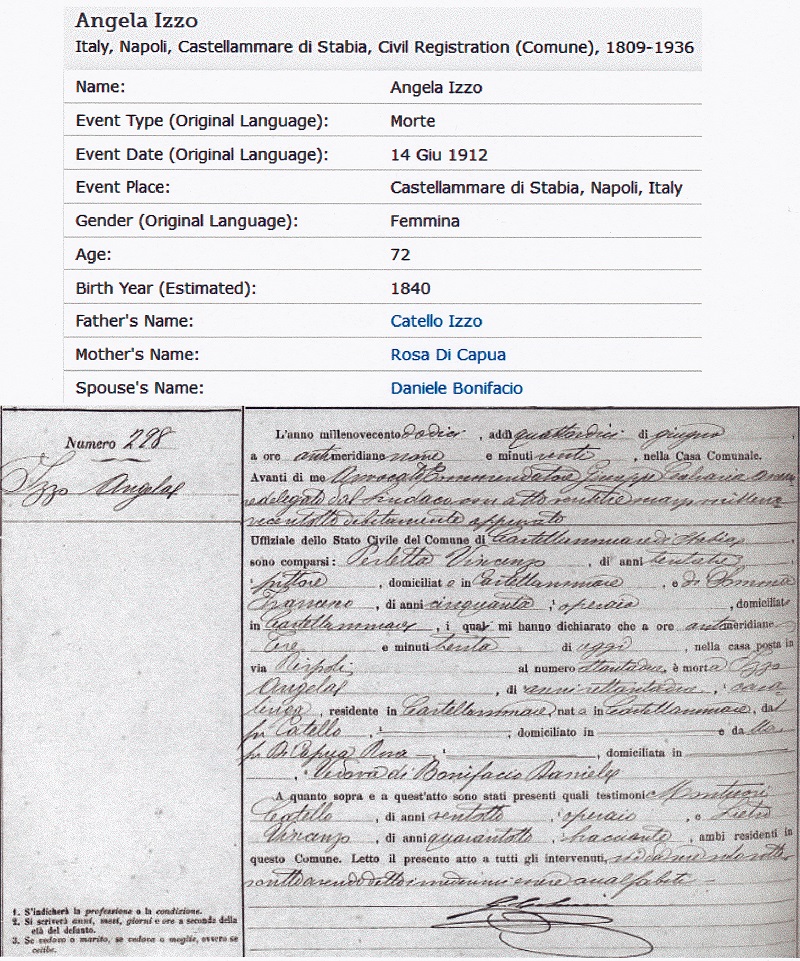 Angela Izzo
Italy, Napoli, Castellammare di Stabia, Civil Registration (Comune), 1809-1936
Name: Angela Izzo
Event Type (Original Language): Morte
Event Date (Original Language): 14 Giu 1912
Event Place: Castellammare di Stabia, Napoli, Italy
Gender (Original Language): Femmina
Age: 72
Birth Year (Estimated): 1840
Father's Name: Catello Izzo
Mother's Name: Rosa Di Capua
Spouse's Name: Daniele Bonifacio
Numero 298
Izzo Angela
L'anno millenovecento dodici, addì quattordici di giugno,
a ore antimeridiane nove e minuti venti, nella Casa Comunale.
Avanti di me Avvocato Commendatore Giuseppe
delegato dal Sindaco con atto
debitamente approvato
Uffiziale dello Stato Civile del Comune di Castellammare di Stabia
sono comparsi: Perletta Vincenzo, di anni trentatre
pittore, domiciliato in Castellammare, e di Somma
, di anni cinquanta, operaio, domiciliato
in Castellammare, i quali mi hanno dichiarato che a ore antimeridiane
tre e minuti trenta di oggi, nella casa posta in
via Rispoli al numero ottantadue, è morta Izzo
Angela, di anni settantadue, casa-
linga, residente in Castellammare, nata in Castellammare, dal
fu Catello, domiciliato in e da lla
fu Di Capua Rosa, domiciliata in
, vedova di Bonifacio Daniele
A quanto sopra e a quest'atto sono stati presenti quali testimoni Montuori
Catello, di anni ventotto, operaio, e
Vincenzo, di anni quarantotto, bracciante, ambi residenti in
questo Comune. Letto il presente atto a tutti gli intervenuti,
analfabeti
1. S'indicherà la professione o la condizione.
2. Si scriverà anni, mesi, giorni e ore a seconda della
età del defunto.
3. Se vedovo o marito, se vedova o moglie, ovvero se
celibe.